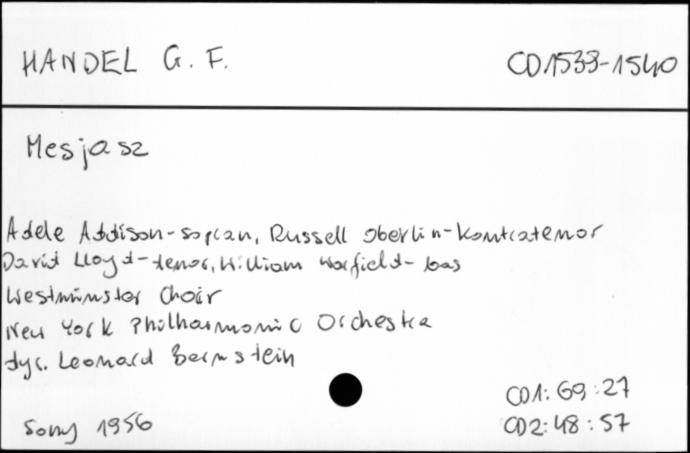 HANDEL G. F. CD1539-1540
Mesjasz
Adele Addison-sopran, Russell Oberlin-kontratenor
David Lloyd-tenor, William Warfield-bas
Westminster Choir
New York Philharmonic Orchestra
dyr. Leonard Bernstein
CD1: 69:27
Sony 1956 CD2: 48:57